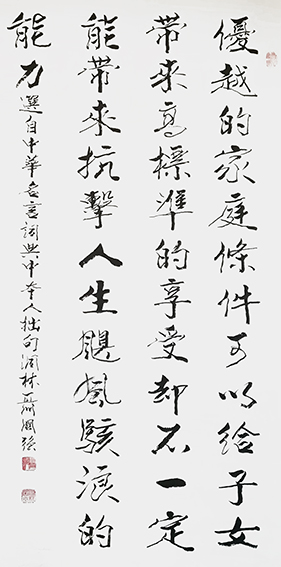 優越的家庭條件可以給子女
帶來高標準的享受却不一定
能帶來抗擊人生颶風駭浪的
能力
選自中華名言詞典中本人拙句潤林